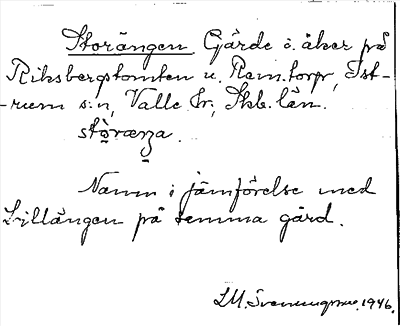 Storängen Gärde i åker på
Riksbergstomten u. Ramtorp, Ist-
-rum s:n, Valle hr, Skb. län.
stòraŋa.
Namn i jämförelse med
Lillängen på samma gård.
1946.